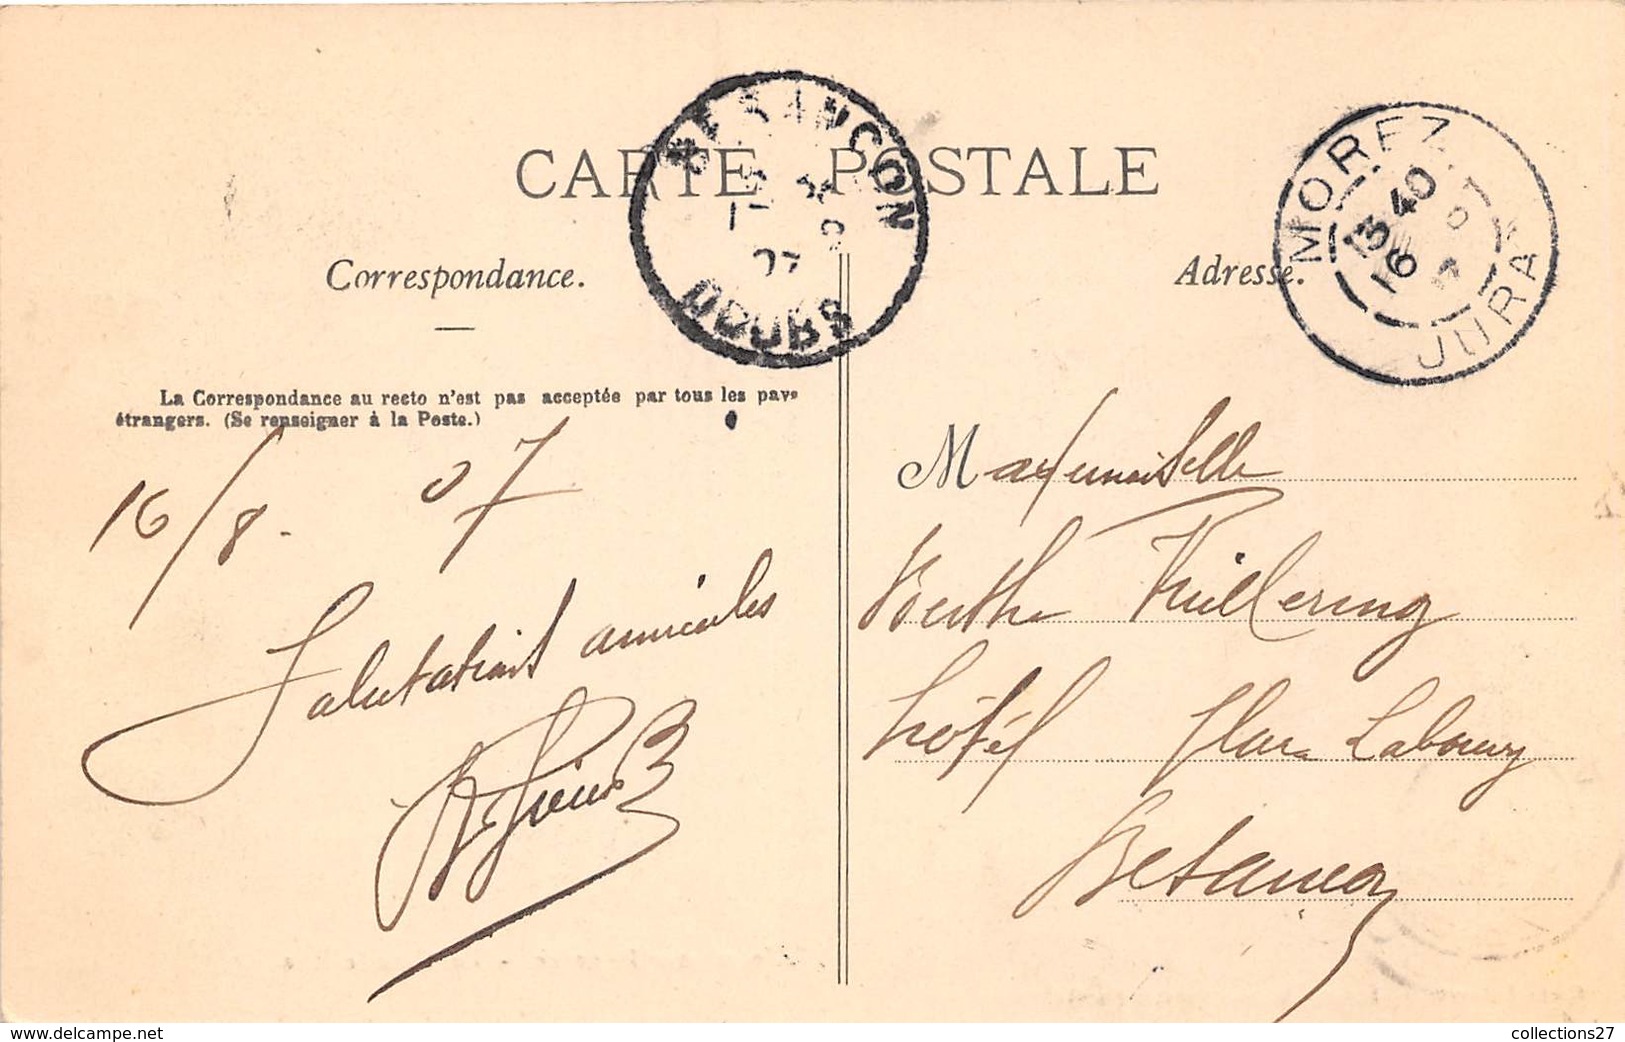 CARTE POSTALE
BESANCON
DOUBS
07
MOREZ
13 40
16 8 07
JURA
Correspondance.
Adresse.
La Correspondance au recto n'est pas acceptée par tous les pays
étrangers. (Se renseigner à la Poste.)
16/8. 07
Salutations amicales
Mademoiselle
Berthe
hôtel Laboury
Besancon
collections27
https://www.delcampe.net